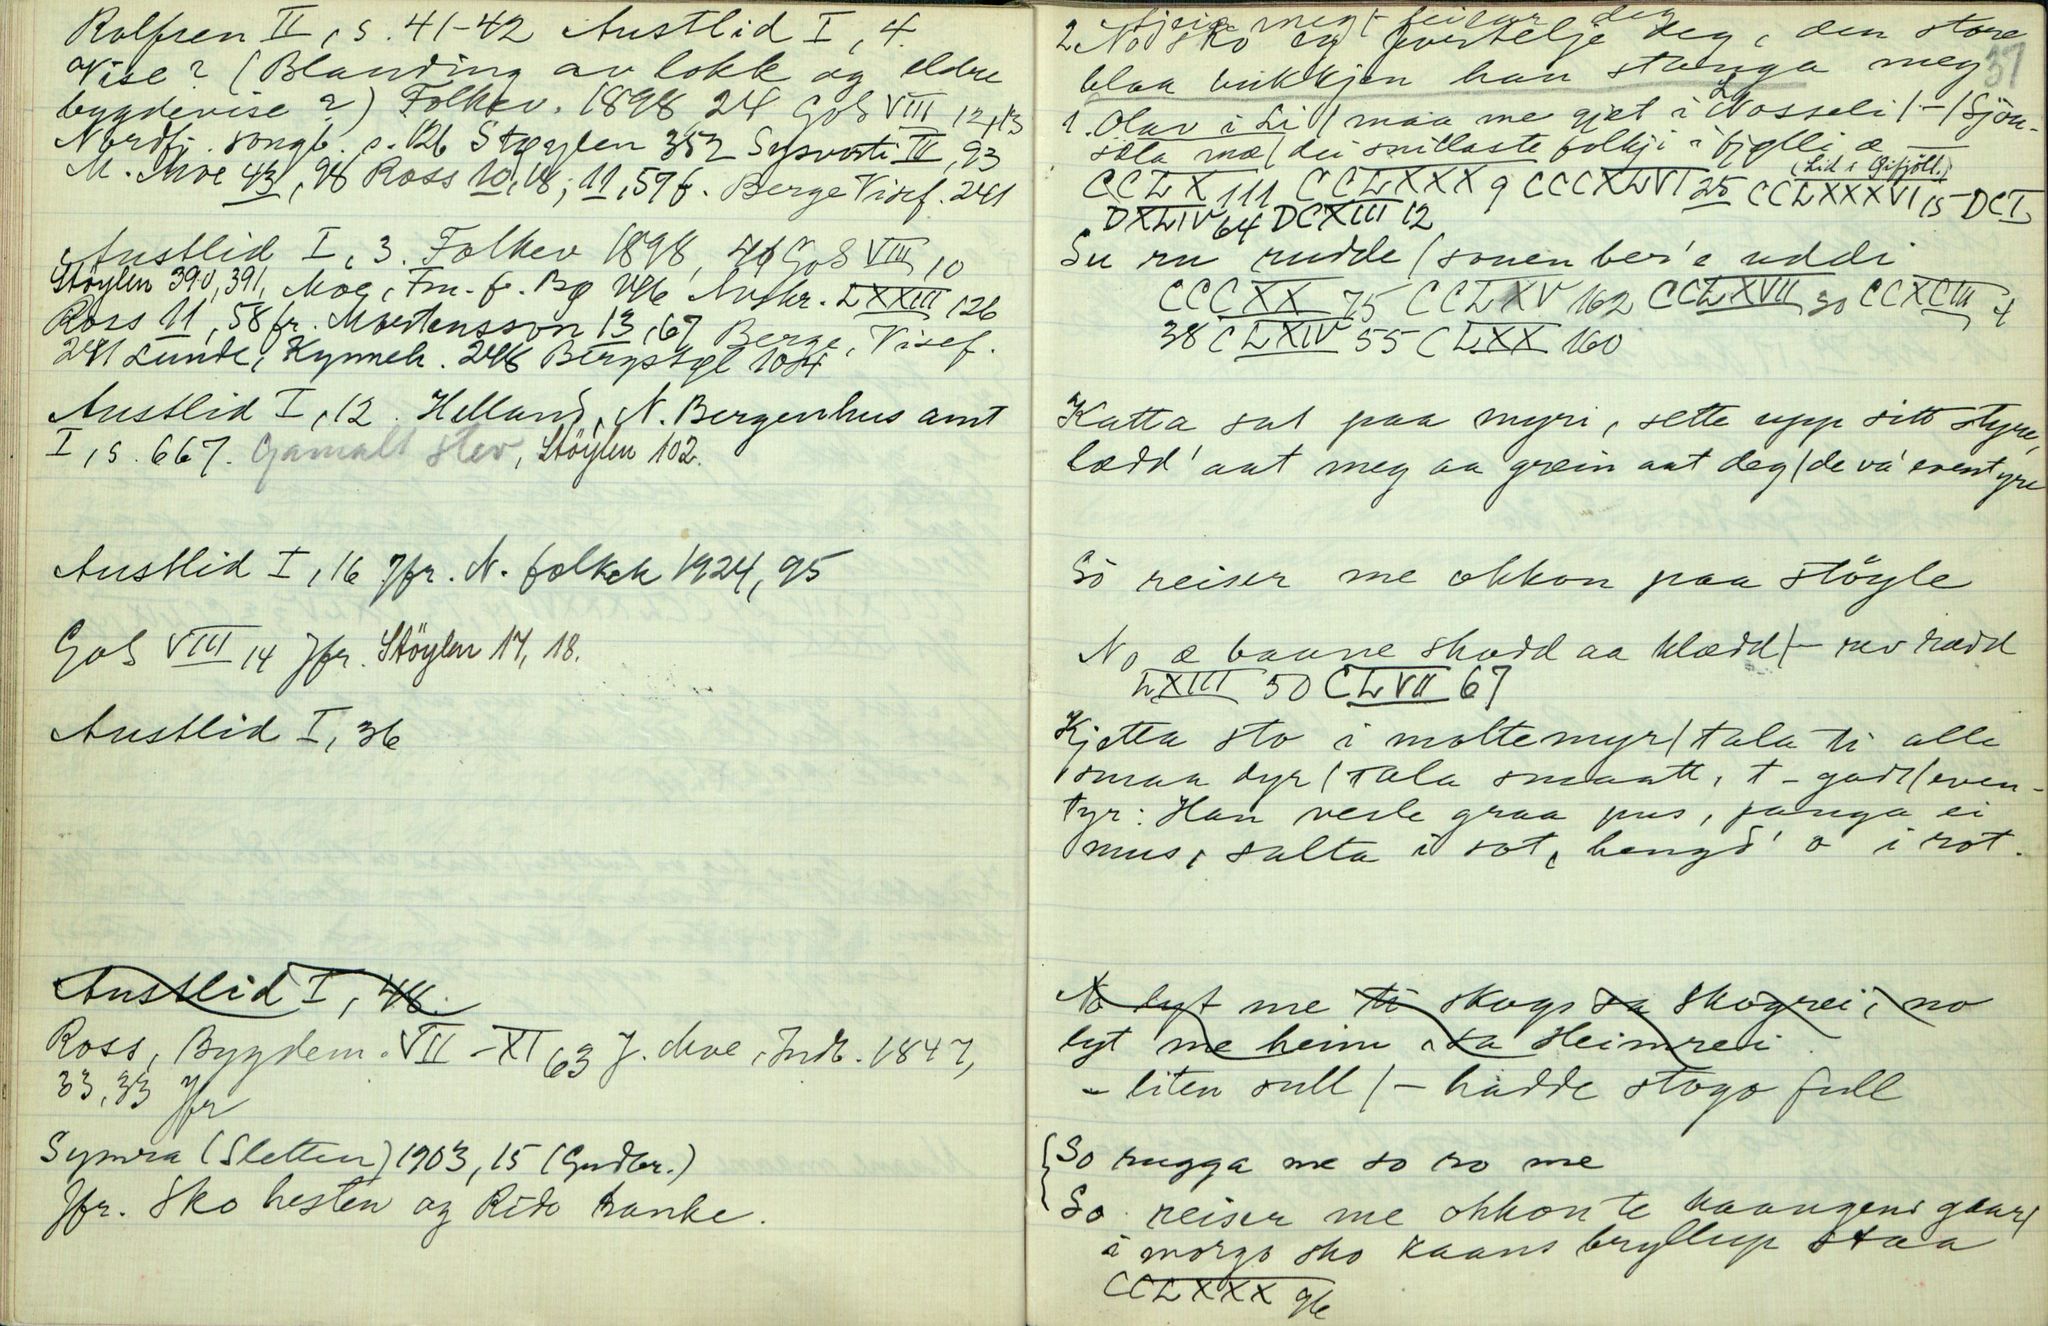 Rolfsen II, s. 41-42 Austlid I, 4.
Vise? (Blanding av lokk og eldre
bygdevise?) Folkev. 1898, 24 GoS VIII 12, 13
Nordfj. songb. s. 126 Støylen 352 Sysvorti II, 93
M. Moe 43, 98 Ross 10, 18; 11, 59 f. Berge Visef. 241
Austlid I, 3. Folkev 1898, 26 GoS VIII 10
Stöylen 390, 391, Moe, Fm. f. Bg 496 Nvskr. LXXIII 126
Ross 11, 58 fr. Mortensson 13, 67 Berge, Visef.
241 Lunde, Kynneh. 248 Bergstøl 104
Austlid I, 12. Helland, N. Bergenhus amt
I, s. 667. Gamalt stev, Stöylen 102.
Austlid I, 16 Jfr. N. folkek 1924, 95
GoS VIII 14 Jfr. Stöylen 17, 18.
Austlid I, 36
Austlid I, 48.
Ross, Bygdem. VII-XI 63 J. Moe, Indb. 1847,
33, 33 Jfr
Symra (Sletten) 1903, 15 (Gudbr.)
Jfr. Sko hesten og Rido Ranke.
37
2. No sko eg fvertelje deg, den store
blaa bukkjen han stanga meg
1. Olav i Li / maa me gjet i Nosseli / - / Sjön-
söla mæ / dei snillaste folkji i fjølli æ
(Lid i Gifjöll.)
CCLX 111 CCLXXX 9 CCCXLVI 25 CCLXXXVI 15 - DCI
DXLIV 64 DCXIII 12
Su ru rudde / sonen ber'e uddi
CCCXX 75 CCLXV 162 CCLXVII 30 CCXCIII 4
38 CLXIV 55 CLXX 160
Katta sat paa myri, sette upp sitt styre,
lædd' aat meg aa grein aat deg / de va' eventyre
So reiser me okkon paa støyle
No æ baane skodd aa klædd / - rev rædd
LXIII 50 CLVII 67
Kjetta sto i moltemyr / tala ti alle
smaa dyr / tala smaatt, t - godt / even-
tyr: Han vesle graa pus, fanga ei
mus, salta i sot, hengd' o i rot.
No lyt me ti skogs sa Skogrei, no
lyt me heim, sa Heimrei
- liten sull / - hadde stogo full
So rugga me so ro me
So reiser me okkon te kaangens gaard
i morgo sko kaans bryllup staa
CCLXXX 96